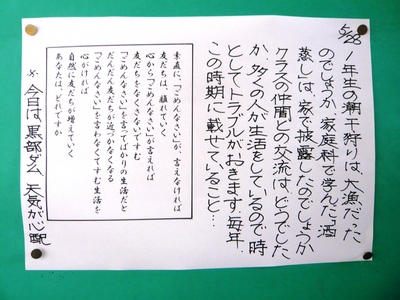 5/28
1年生の潮干狩りは、大漁だった
のでしょうか 家庭科で学んだ酒
蒸しは、家で披露したのでしょうか
クラスの仲間との交流は、どうでした
か、多くの人が生活をしているので時
としてトラブルがおきます。毎年、
この時期に載せていること…
素直に、「ごめんなさい」が、言えなければ
友だちは、離れていく
心から「ごめんなさい」が言えれば
友だちをなくさないですむ
「ごめんなさい」を言ってばかりの生活だと
だんだん友だちが近づかなくなる
「ごめんなさい」を言わなくてすむ生活を
心がければ
自然に友だちが増えていく
あなたは、どれですか
※ 今日は、黒部ダム 天気が心配